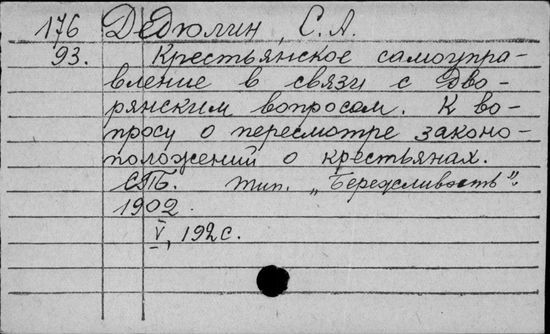 176 Дедюлин, С. А.
93. Крестьянское самоупра-
вление в связи с дво-
рянским вопросом. К во-
просу о пересмотре законо-
положений о крестьянах.
СПБ. тип. „Бережливость".
1902.
V, 192 с.